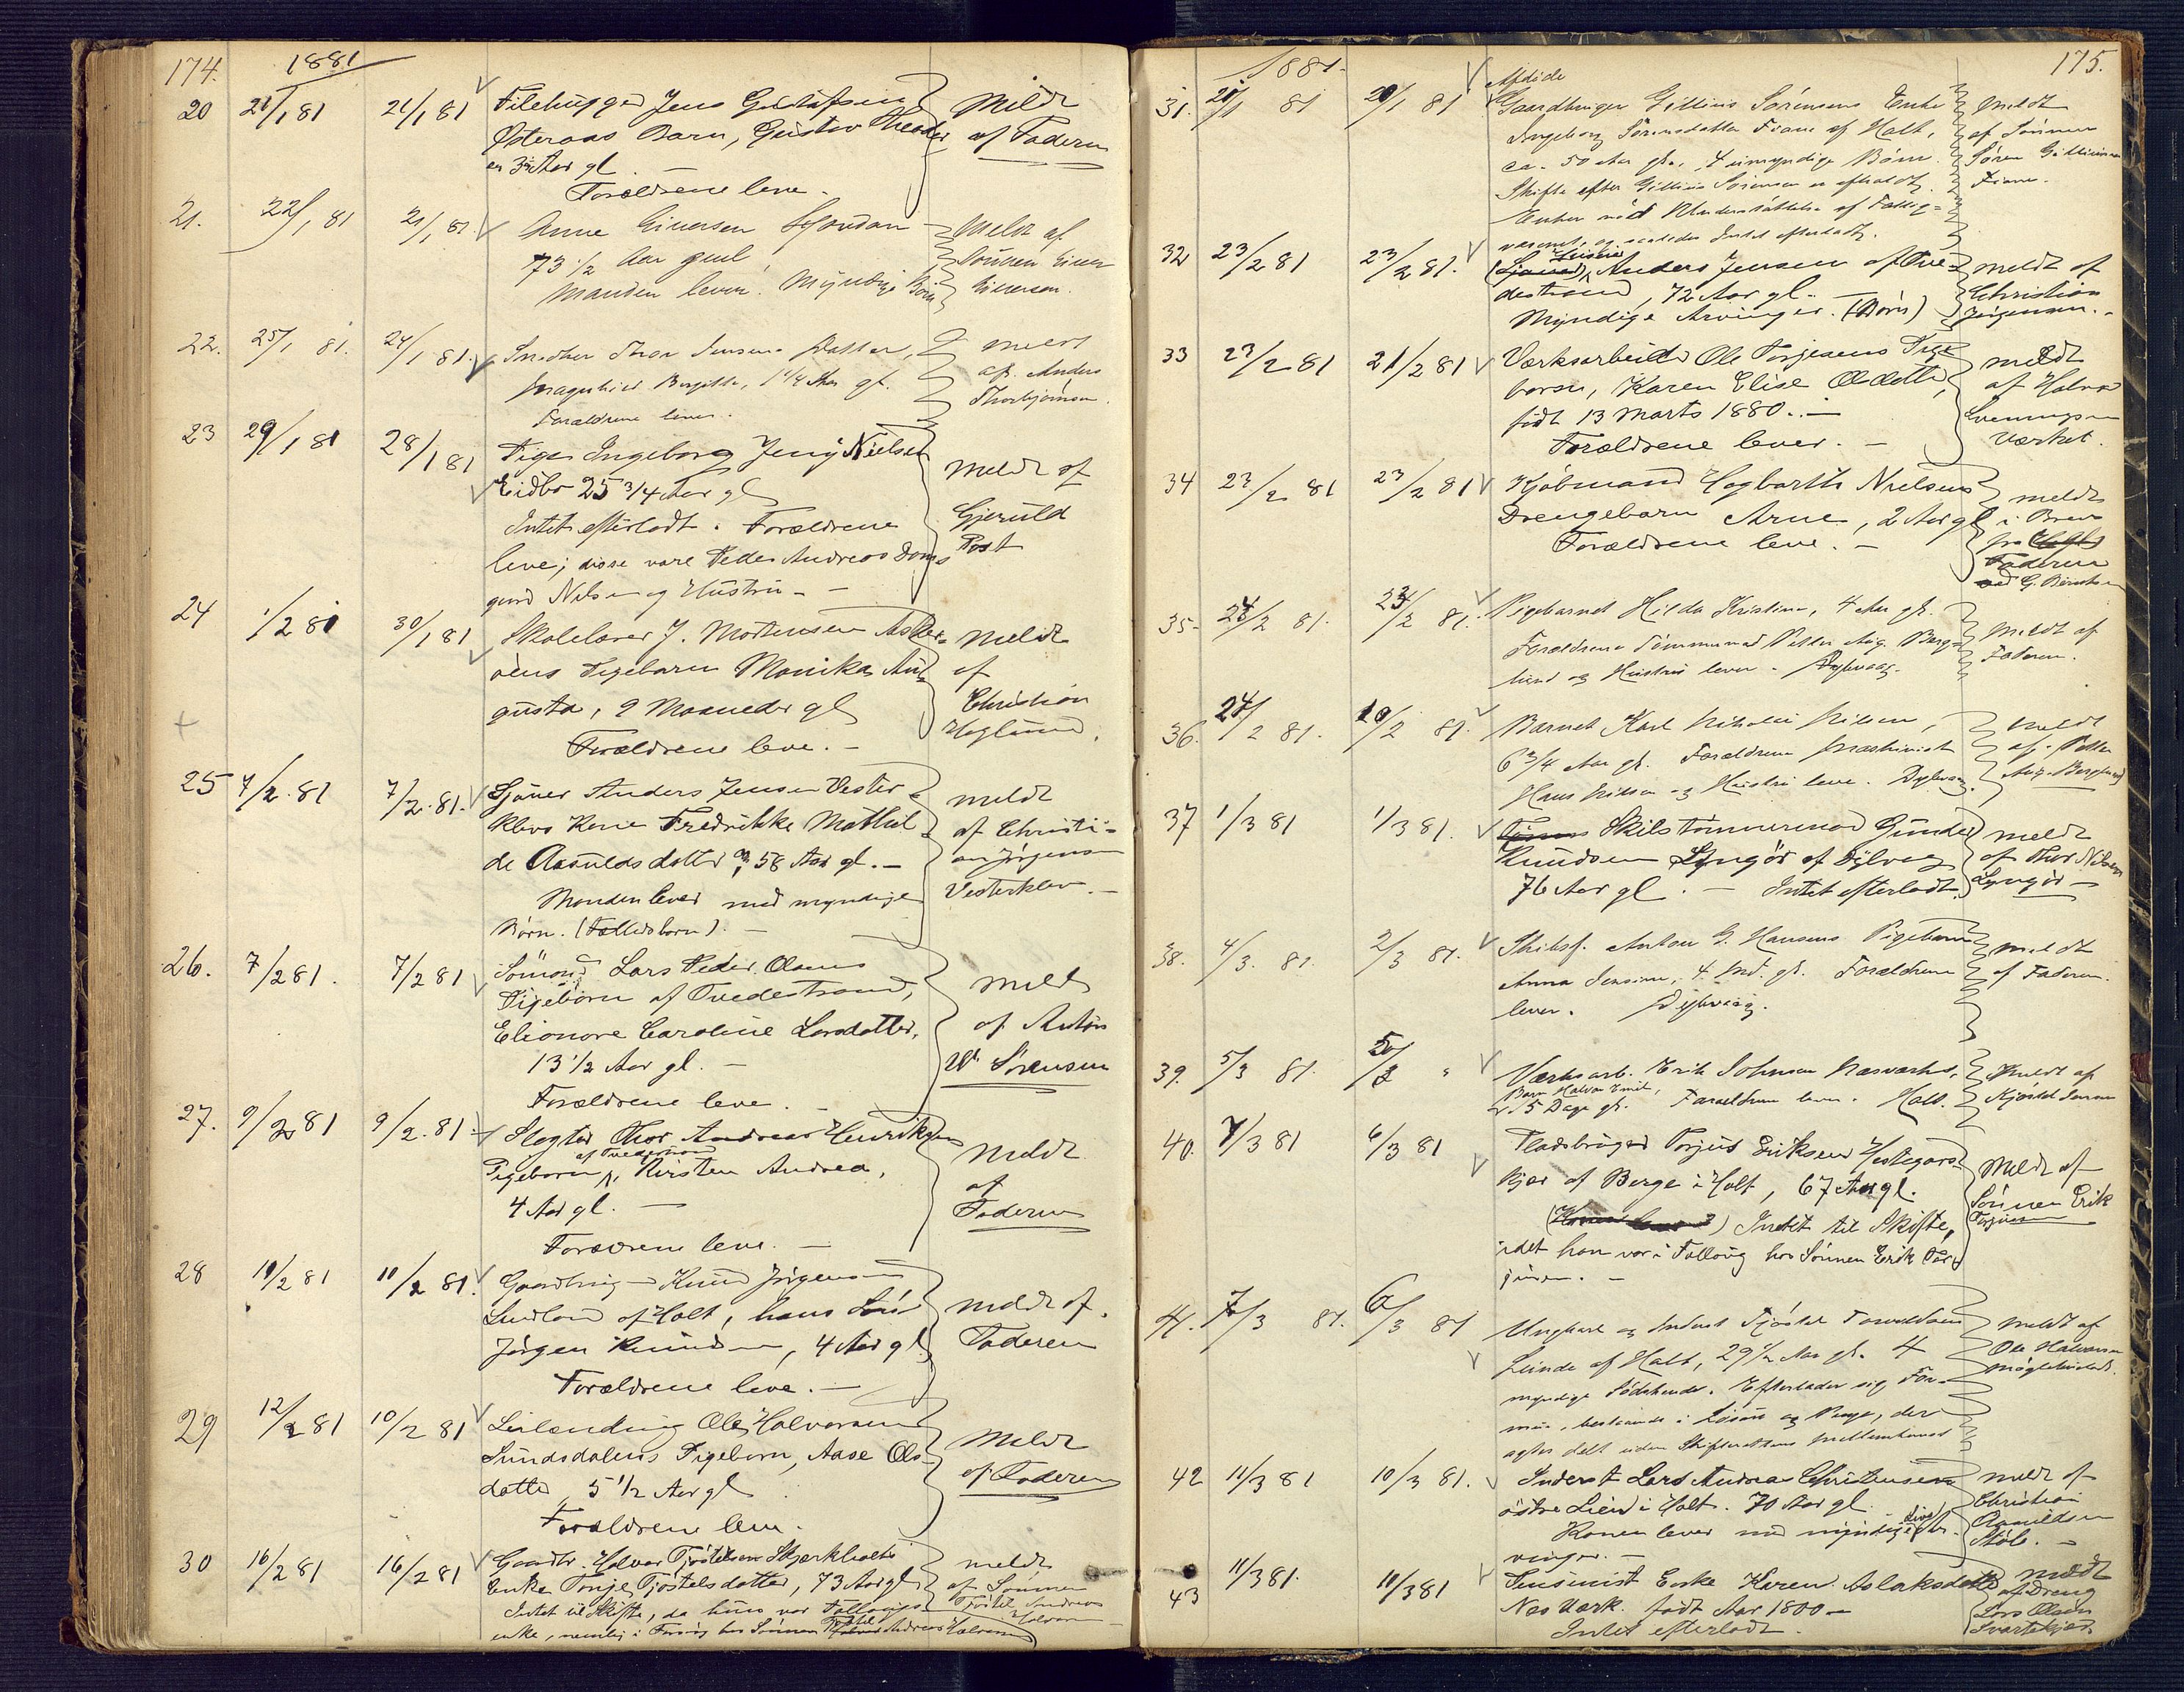 174. 1881
20 21/1 81 21/1 81 Filehugger Jens Gustafsen Meldt
Østeraas Barn, Gustav Theodor af Faderen
er 3½ Aar gl
Forældrene leve.
21. 22/1 81 21/1 81 Anne Einersen Meldt af
73 1/2 Aar gml Sønnen Einer
Manden lever. Myndige Børn Einersen.
22. 25/1 81. 24/1 81. Snedker Thor Jensens Datter, meldt
Magnhild Bergitte, 1 1/4 Aar gl. af Anders
Forældrene lever. Thorbjørnsen.
23 29/1 81 28/1 81 Pige Ingeborg Jeny Nielsen Meldt af
Eidbo 25 3/4 Aar gl Gjeruld
Intet efterladt. Forældrene Post
leve; disse vare Peder Andreas Dams
gaard Nilsen og Hustru
24 1/2 81 30/1 81 Skolelærer J. Mortensen Asker= Meldt
øens Pigebarn Monika Au= af
gusta, 9 Maaneder gl Christian
Forældrene leve. Hoglund.
25 7/2 81 7/2 81. Sjømd Anders Jensen Vester= meldt
klevs Kone Fredrikke Mathil= af Christi=
de Aanuldsdatter 58 Aar gl. an Jørgensen
Manden lever med myndige Vesterklev.
Børn. (Fællesbørn).
26. 7/2 81. 7/2 81 Sømand Lars Peder Olsens Meldt
Pigebarn af Tvedestrand, af Anton
Elionore Caroline Larsdatter, W. Sørensen
13 1/2 Aar gl.
Forældrene leve.
27. 9/2 81 9/2 81 Slagter Thor Andreas Henriksens Meldt
af Tvedestrand
Pigebarn, Kirsten Andrea, af
4 Aar gl. Faderen
Forældrene leve.
28 10/2 81 10/2 81. Gaardbruger Knud Jørgensen meldt af
Lindland af Holt, hans Søn Faderen
Jørgen Knudsen, 4 Aar gl
Forældrene leve.
29 12/2 81 10/2 81 Leilænding Ole Halvorsen Meldt
Sundsdalens Pigebarn, Aase Ols= af Faderen
datter 5 1/2 Aar gl
Forældrene leve.
30 16/2 81 16/2 81 Gaardbr. Halvor Tjøstelsen Skjerkholts meldt
Enke Tonje Tjøstelsdatter, 73 Aar gl af Sønnen
Intet til Skifte, da hun var Føllougs= Tjøstel Andreas
enke, nemlig i Forsørg hos Sønnen Tjøstel Andreas Halvorsen Halvorsen
1881. 175.
Afdøde
31. 20/1 81 20/1 81 Gaardbruger Gittinis Sørensens Enke Meldt
Ingeborg Sørensdatter Fiane af Holt, af Sønnen
ca. 50 Aar gl., 4 umyndige Børn. Søren Gittinisen
Skifte efter Gittinis Sørensen er afholdt. Fiane.
Enken nød Understøttelse af Fattig=
væsenet, og saaledes Intet efterladt.
32 23/2 81 23/2 81. Anders Jensen af Tve= meldt af
destrand, 72 Aar gl. Christian
Myndige Arvinger. (Børn) Jørgensen.
33 23/2 81 21/2 81 Værksarbeider Ole Torjesens Pige meldt
barn, Karen Elise Olsdatter, af Halvor
født 13 Marts 1880. Evensen
Forældrene lever. Værket.
34 23/2 81 23/2 81 Kjøbmand Hagbarth Nielsens meldt
Drengebarn Arne, 2 Aar gl i Brev
Forældrene leve. fra
Faderen
ved G.
35. 24/2 81. 23/2 81. Pigebarnet Hilda Kristine, 4 Aar gl. Meldt af
Forældrene Tømmermand Petter Aug. Berg= Faderen.
lund og Hustru lever. Dybvaag.
36. 24/2 81. 20/2 81. Barnet Karl Nikolai Nilsen, Meldt
6 3/4 Aar gl. Forældrene Maskinist af Petter
Hans Nilsen og Hustru leve. Dybvaag. Aug. Berglund
37 1/3 81 1/3 81. Skibstømmermand Gunder meldt
Knudsen Lyngør af Dybvaag af Thor Nilsen
76 Aar gl. Intet efterladt. Lyngør
38. 4/3. 81. 2/3 81. Skibsf. Anton G. Hansens Pigebarn meldt
Anna Jensine, 4 Md. gl. Forældrene af Faderen.
lever. Dybvaag.
39. 5/3 81. 5/3 " Værksarb. Erik Johnsen Næsværks, Meldt af
Barn Halvor Emil,
15 Dage gl. Forældrene lever. Holt. Kjøstel Jensen
40. 7/3 81 6/3 81 Pladsbruger Torjus Eriksen Hestegars= Meldt af
kjær af Berge i Holt, 67 Aar gl. Sønnen Erik
Intet til Skifte, Torjusen
idet han var i Følloug hos Sønnen Erik Tor=
jusen.
41. 7/3 81. 6/3 81 Ungkarl og Inderst Tjøstel Torvaldsen meldt af
Leinde af Holt, 29 1/2 Aar gl. 4 Ole Halvorsen
myndige Sødskende. Efterlader sig For= Møglebustad.
mue, bestaaende i Løsøre og Penge, der
agtes delt uden Skifterettens Mellemkomst
42 11/3 81 10/3 81. Inderst Lars Andreas Christensen meldt af
østre Lien i Holt. 70 Aar gl. Christian
Konen lever med myndige Livsar= Aanuldsen
vinger. Støle.
43 11/3 81. 10/3 81 Enke Karen Aslaksdatter meldt
Næs Værk. født Aar 1800 af Dreng
Intet efterladt. Lars Olsen
Svartekjær.